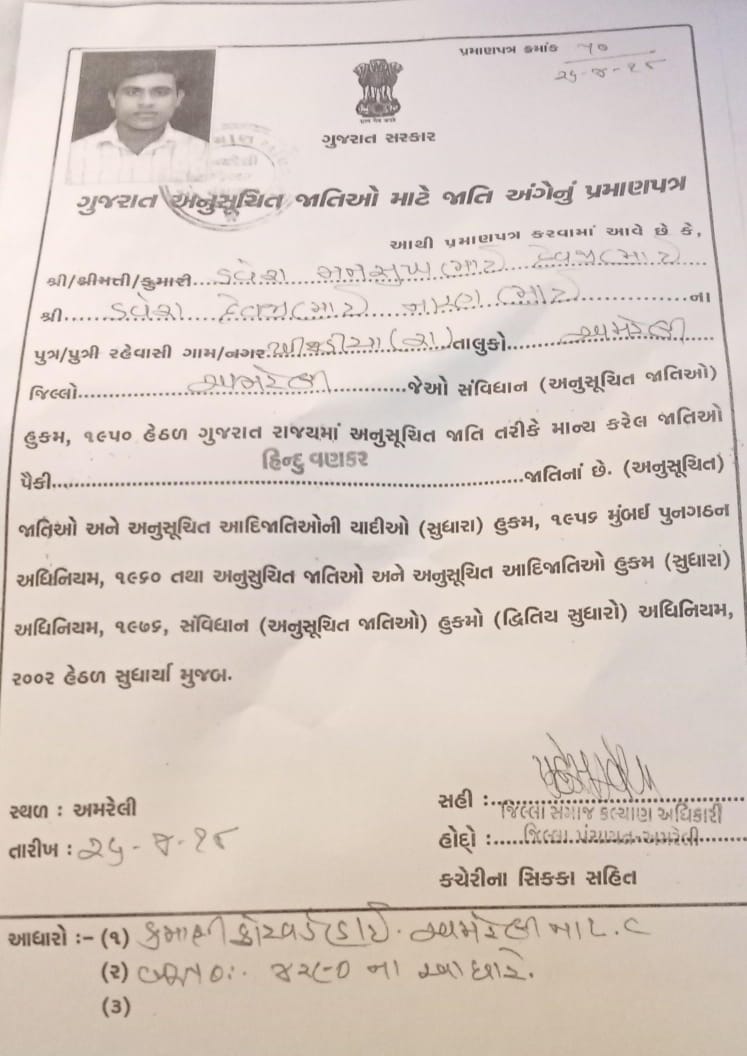 પ્રમાણપત્ર ક્રમાંક ૫૦
ગુજરાત સરકાર
ગુજરાત અનુસૂચિત જાતિઓ માટે જાતિ અંગેનું પ્રમાણપત્ર
આથી પ્રમાણપત્ર કરવામાં આવે છે કે,
શ્રી/શ્રીમતી/કુમારી..... મનસુખ(ભાઈ) દેવજી(ભાઈ)
શ્રી..... દેવજી(ભાઈ) નારણ(ભાઈ).....ના
પુત્ર/પુત્રી રહેવાસી ગામ/નગર.....તાલુકો.....અમરેલી
જિલ્લો.....અમરેલી.....જેઓ સંવિધાન (અનુસૂચિત જાતિઓ)
હુકમ, ૧૯૫૦ હેઠળ ગુજરાત રાજ્યમાં અનુસૂચિત જાતિ તરીકે માન્ય કરેલ જાતિઓ
પૈકી.....હિન્દુ વણકર.....જાતિનાં છે. (અનુસૂચિત)
જાતિઓ અને અનુસૂચિત આદિજાતિઓની યાદીઓ (સુધારા) હુકમ, ૧૯૫૬ મુંબઈ પુનગઠન
અધિનિયમ, ૧૯૬૦ તથા અનુસુચિત જાતિઓ અને અનુસૂચિત આદિજાતિઓ હુકમ (સુધારા)
અધિનિયમ, ૧૯૭૬, સંવિધાન (અનુસૂચિત જાતિઓ) હુકમો (દ્વિતિય સુધારો) અધિનિયમ,
૨૦૦૨ હેઠળ સુધાર્યા મુજબ.
સ્થળ : અમરેલી
સહી :.....
જિલ્લા સમાજ કલ્યાણ અધિકારી
તારીખ :
હોદ્દો :.....જિલ્લા પંચાયત-અમરેલી.....
કચેરીના સિક્કા સહિત
આધારો :- (૧) અમરેલી ના L.C
(૨) ના આધારે.
(૩)